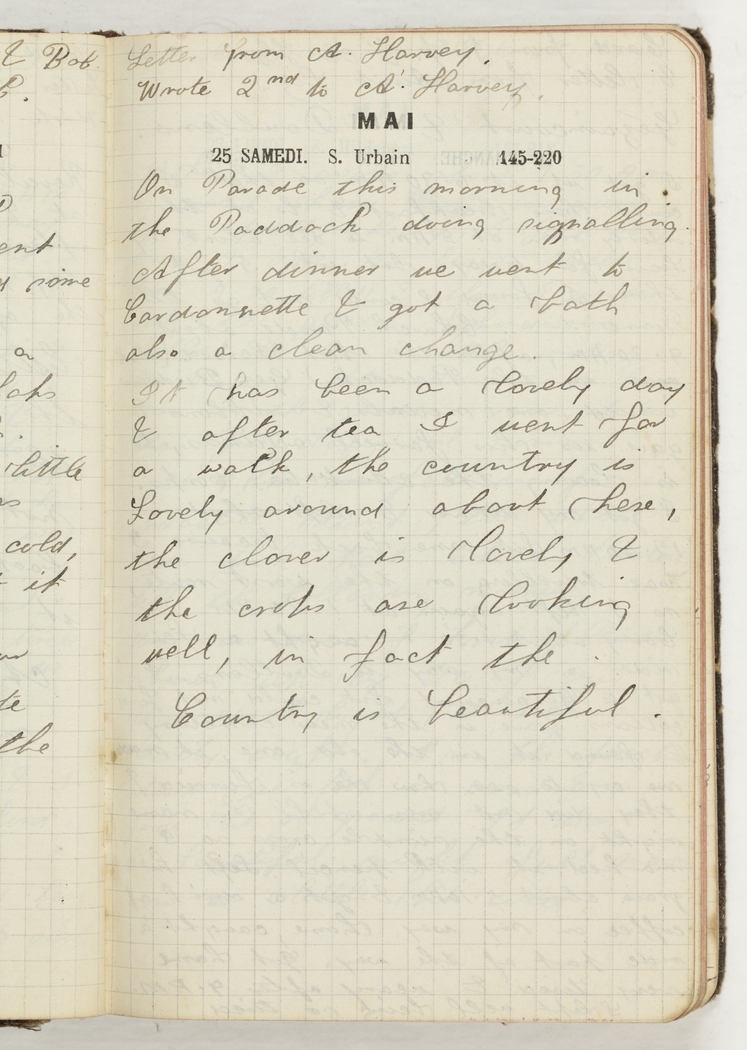 & Bob.
ent
some
a
little
cold,
it
te
the
Letter from A. Harvey.
Wrote 2nd to A. Harvey.
MAI
25 SAMEDI. S. Urbain 145-220
On Parade this morning in
the Paddock doing signalling.
After dinner we went to
Cardonnette & got a bath
also a clean change.
It has been a lovely day
& after tea I went for
a walk, the country is
Lovely around about here,
the clover is lovely &
the crops are looking
well, in fact the
Country is beautiful.